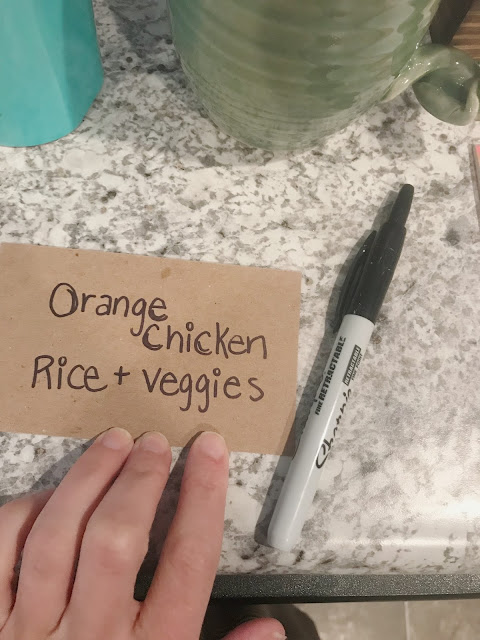 Orange
Chicken
Rice + veggies
FINE RETRACTABLE
Sharpie